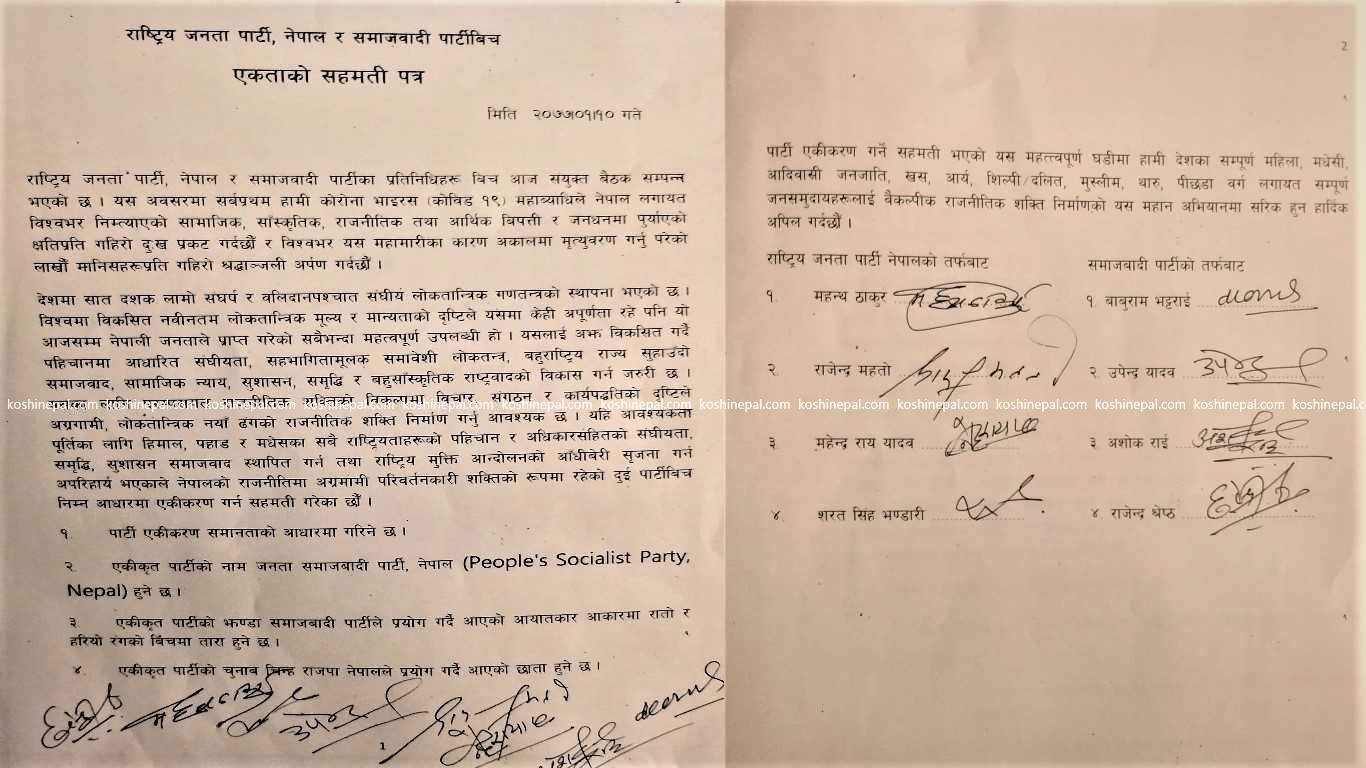 राष्ट्रिय जनता पार्टी, नेपाल र समाजवादी पार्टीबिच
एकताको सहमती पत्र
मिति २०७७।०१।१० गते
राष्ट्रिय जनता पार्टी, नेपाल र समाजवादी पार्टीका प्रतिनिधिहरू बिच आज संयुक्त बैठक सम्पन्न
भएको छ । यस अवसरमा सर्वप्रथम हामी कोरोना भाइरस (कोविड १९) महाव्याधिले नेपाल लगायत
विश्वभर निम्त्याएको सामाजिक, साँस्कृतिक, राजनीतिक तथा आर्थिक बिपत्ती र जनधनमा पुर्याएको
क्षतिप्रति गहिरो दुःख प्रकट गर्दछौं र विश्वभर यस महामारीका कारण अकालमा मृत्युवरण गर्नु परेको
लाखौं मानिसहरूप्रति गहिरो श्रद्धाञ्जली अर्पण गर्दछौं ।
देशमा सात दशक लामो संघर्ष र वलिदानपश्चात संघीयं लोकतान्त्रिक गणतन्त्रको स्थापना भएको छ ।
विश्वमा विकसित नवीनतम लोकतान्त्रिक मूल्य र मान्यताको दृष्टिले यसमा केही अपूर्णता रहे पनि यो
आजसम्म नेपाली जनताले प्राप्त गरेको सबैभन्दा महत्वपूर्ण उपलब्धी हो । यसलाई अझ विकसित गर्दै
पहिचानमा आधारित संघीयता, सहभागितामूलक समावेशी लोकतन्त्र, बहुराष्ट्रिय राज्य सुहाउँदो
समाजवाद, सामाजिक न्याय, सुशासन, समृद्धि र बहुसाँस्कृतिक राष्ट्रवादको विकास गर्न जरुरी छ ।
राजनीतिक शक्तिको विकल्पमा विचार, संगठन र कार्यपद्धतिको दृष्टिले
अग्रगामी, लोकतान्त्रिक नयाँ ढंगको राजनीतिक शक्ति निर्माण गर्नु आवश्यक छ । यहि आवश्यकता
पूर्तिका लागि हिमाल, पहाड र मधेसका सबै राष्ट्रियताहरूको पहिचान र अधिकारसहितको संघीयता,
समृद्धि, सुशासन समाजवाद स्थापित गर्न तथा राष्ट्रिय मुक्ति आन्दोलनको आँधीवेरी सृजना गर्न
अपरिहार्य भएकाले नेपालको राजनीतिमा अग्रगामी परिवर्तनकारी शक्तिको रूपमा रहेको दुई पार्टीबिच
निम्न आधारमा एकीकरण गर्न सहमती गरेका छौं ।
१. पार्टी एकीकरण समानताको आधारमा गरिने छ ।
२. एकीकृत पार्टीको नाम जनता समाजबादी पार्टी, नेपाल (People's Socialist Party,
Nepal) हुने छ ।
३. एकीकृत पार्टीको झण्डा समाजबादी पार्टीले प्रयोग गर्दै आएको आयातकार आकारमा रातो र
हरियो रंगको बिचमा तारा हुने छ ।
४. एकीकृत पार्टीको चुनाब चिन्ह राजपा नेपालले प्रयोग गर्दै आएको छाता हुने छ ।
1
2
पार्टी एकीकरण गर्ने सहमती भएको यस महत्त्वपूर्ण घडीमा हामी देशका सम्पूर्ण महिला, मधेसी,
आदिवासी जनजाति, खस, आर्य, शिल्पी/दलित, मुस्लीम, थारु, पीछडा वर्ग लगायत सम्पूर्ण
जनसमुदायहरूलाई बैकल्पीक राजनीतिक शक्ति निर्माणको यस महान अभियानमा सरिक हुन हार्दिक
अपिल गर्दछौं ।
राष्ट्रिय जनता पार्टी नेपालको तर्फबाट
१. महन्थ ठाकुर
२. राजेन्द्र महतो
३ महेन्द्र राय यादव
४. शरत सिंह भण्डारी
समाजबादी पार्टीको तर्फबाट
१. बाबुराम भट्टराई
२. उपेन्द्र यादव
३ अशोक राई
४. राजेन्द्र श्रेष्ठ
koshinepal.com koshinepal.com koshinepal.com koshinepal.com koshinepal.com koshinepal.com koshinepal.com koshinepal.com koshinepal.com koshinepal.com koshinepal.com koshinepal.com koshinepal.com koshinepal.com